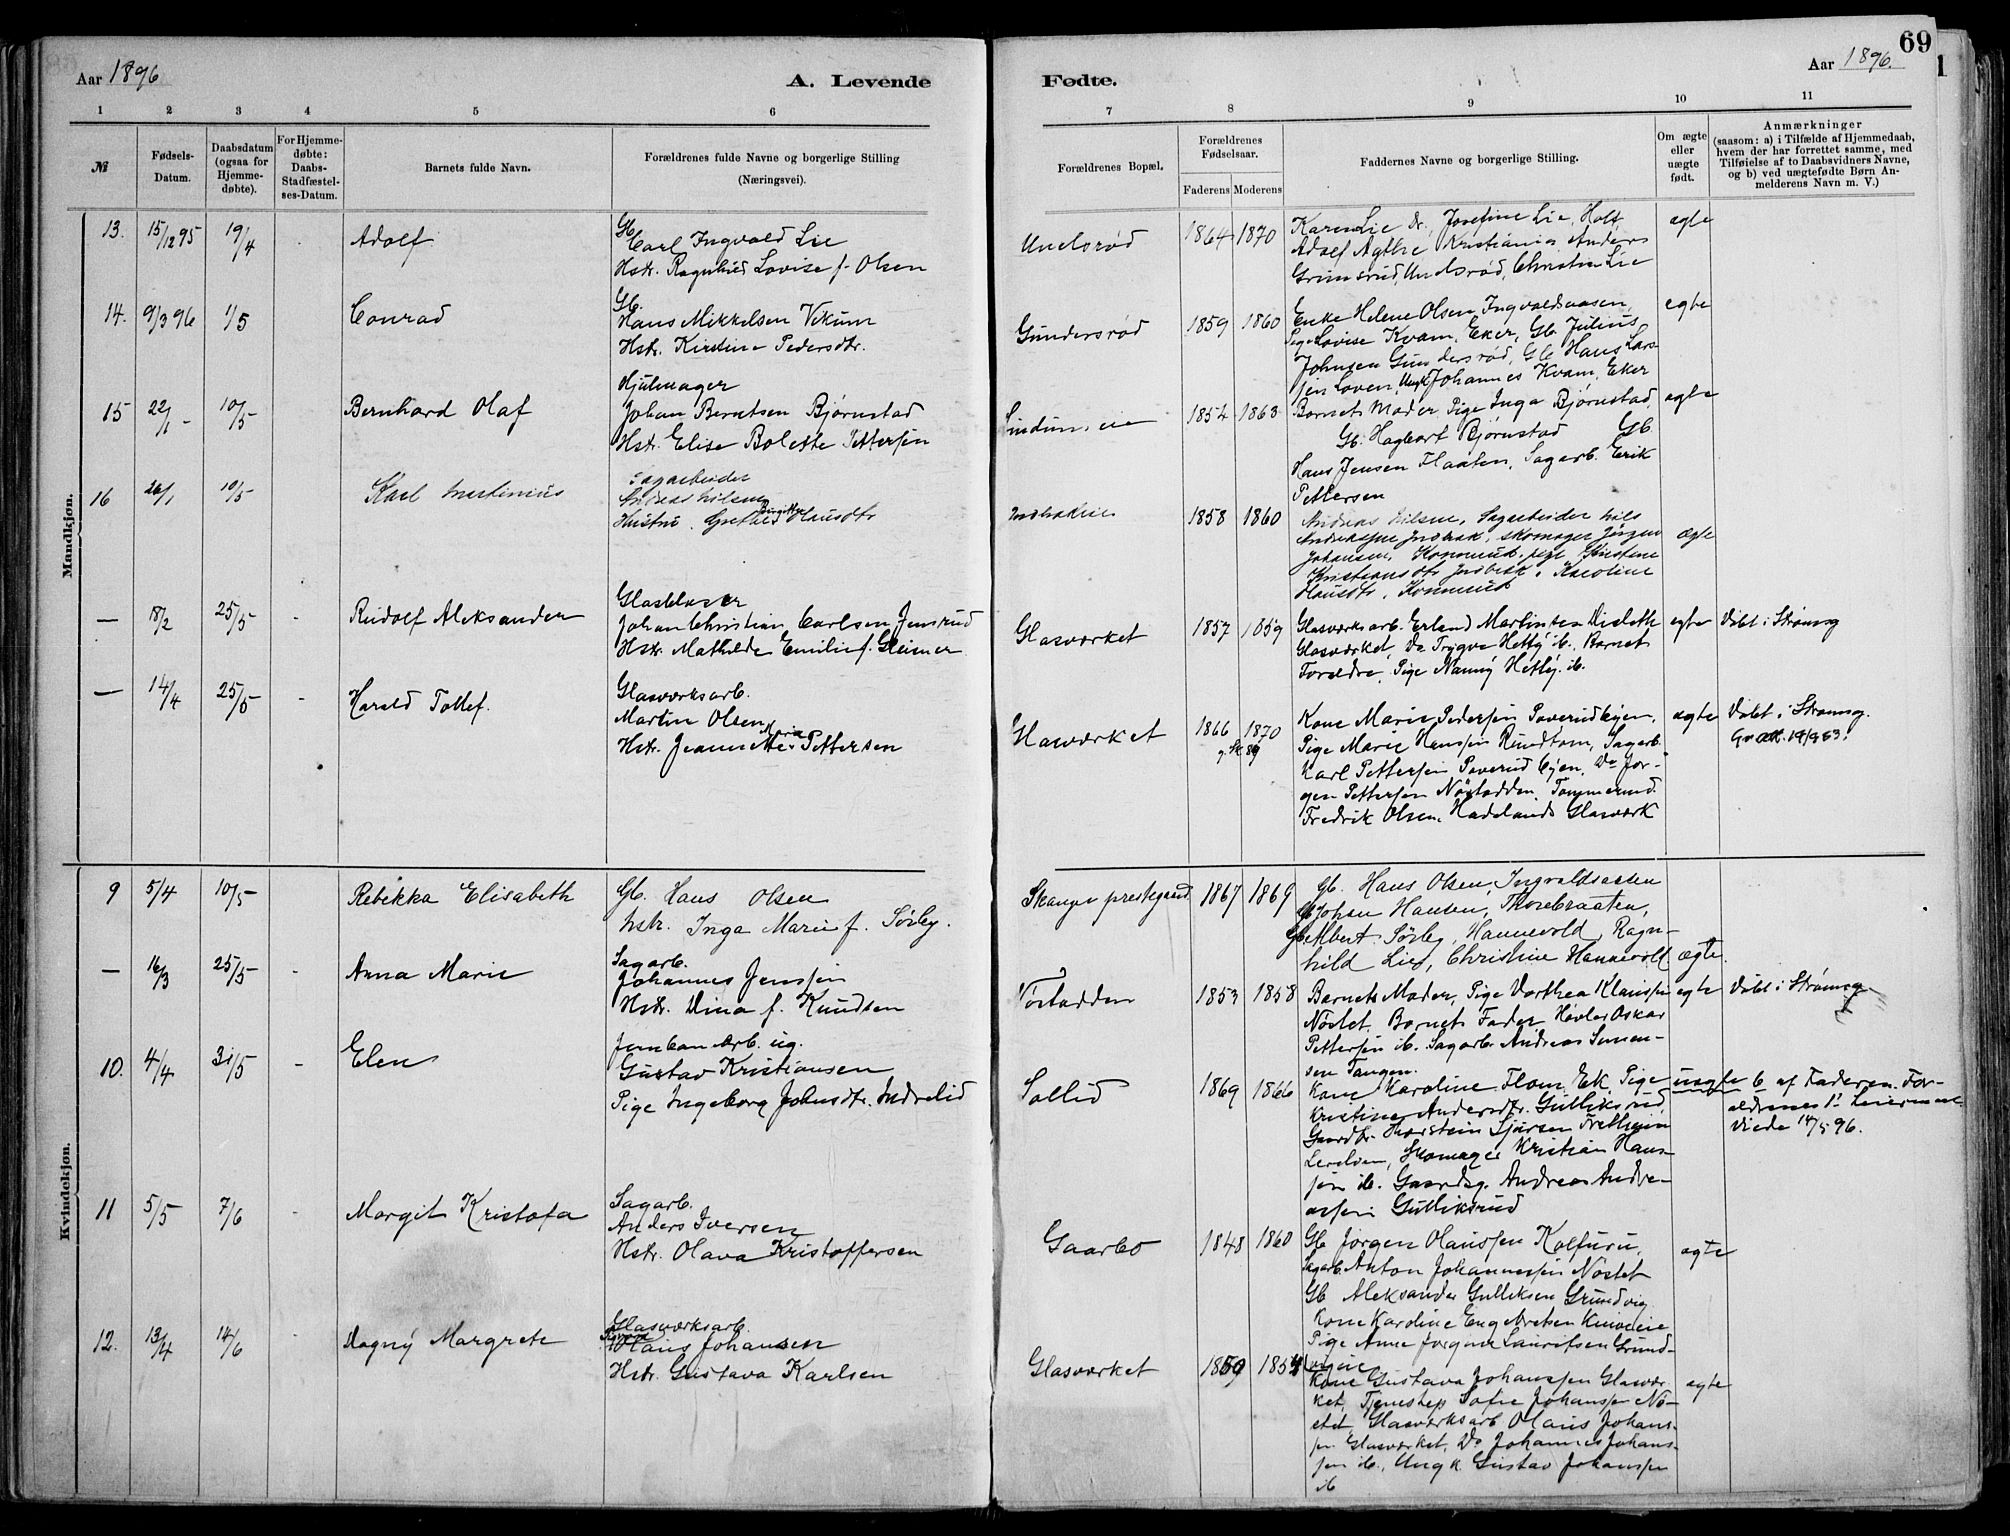 69
Aar 1896
A. Levende
Fødte.
Aar 1896.
1 2 3 4 5 6 7 8 9 10 11
№
Fødsels-
Datum.
Daabsdatum
(ogsaa for
Hjemme-
døbte).
For Hjemme-
døbte:
Daabs-
Stadfæstel-
ses-Datum.
Barnets fulde Navn.
Forældrenes fulde Navne og borgerlige Stilling
(Næringsvei).
Forældrenes Bopæl.
Forældrenes
Fødselsaar.
Faderens Moderens
Faddernes Navne og borgerlige Stilling.
Om ægte
eller
uægte
født.
Anmærkninger
(saasom: a) i Tilfælde af Hjemmedaab,
hvem der har forrettet samme, med
Tilføielse af to Daabsvidners Navne,
og b) ved uægtefødte Børn An-
melderens Navn m. V.)
Mandkjøn.
13. 15/12 95 19/4 Adolf
Gb.
Carl Ingvald Lie
Hstr. Ragnhild Lovise f. Olsen
1864 1870
Karen Lie Dr., Josefine Lie, Holt
Adolf Agthe Kristiania Anders
Grimsrud, Christen Lie
ægte
14. 9/3 96 1/5 Conrad
Gb.
Hans Mikkelsen Vikum
Hstr. Kirstine Pedersdtr.
Gundersrød 1859 1860
Enke Helene Olsen Ingvaldsaasen,
Pige Lovise Kvam, Eker, Gb. Julius
Johnsen Gundersrød, Gb. Hans Lar-
sen Loven, Ungk. Johannes Kvam, Eker
egte
15 22/1 - 10/5 Bernhard Olaf
Hjulmager
Johan Berntsen Bjørnstad
Hstr. Elise Bolette Pettersen
Lindum, eie 1854 1863
Barnets Moder, Pige Inga Bjørnstad,
Gb. Hagbart Bjørnstad Gb
Hans Jensen Flaaten, Sagarb. Erik
Pettersen
ægte
16 26/1 10/5 Karl Martinius
Sagarbeider
Andreas Nilsen
Hustru. Grethe Birgitte Hansdtr
1858 1860
Andreas Nilsen, Sagarbeider Nils
skomager Jørgen
Johansen, pige Kirstine
Kristiansdtr, Karoline
Hansdtr,
Ægte
— 18/2 25/5 - Rudolf Aleksander
Glasblaser
Johan Christian Carlsen Jensrud
Hstr. Mathilde Emilie f. Gleisner
Glasværket 1857 1859
Glasværksarb. Erland Martinsen Disleth
Glasværket, Do Trygve Hetty ib. Barnets
Forældre, Pige Nanny Hetty. ib.
egte Døbt i Strømsg
— 14/4 25/5 - Harald Tollef.
Glasværksarb.
Martin Olsen
Hstr. Jeanette Marie Pettersen
Glasværket 1866 1870
g. Sk 89
Kone Marie Pedersen Paverudbyen,
Pige Marie Hansen Rundtom, Sagarb.
Karl Pettersen Paverud byen, Do Jør-
gen Pettersen Nøstodden, Tømmermd.
Fredrik Olsen, Hadelands Glasværk
ægte Døbt i Strømsg.
Kvindekjøn.
9 5/4 10/5 Rebekka Elisabeth
Gb. Hans Olsen
hstr. Inga Marie f. Sørby.
Skanger prestegaard 1867 1869
Gb. Hans Olsen, Ingvaldsaasen
Gb Johan Hansen, Thorebraaten,
Gb. Albert Sørby, Hannevold, Ragn-
hild Lie, Christine Hannevold
ægte.
— 16/3 25/5 - Anna Marie
Sagarb.
Johannes Jenssen
Hstr. Dina f. Knudsen
Nøstodden 1853 1858
Barnets Moder, Pige Dorthea Klaussen
Nøstet, Barnets Fader, Høvler Oskar
Pettersen ib. Sagarb. Andreas Simen-
sen Tangen.
egte Døbt i Strømsg
10. 4/4 31/5 - Elen
Jernban Arb. ug.
Gustav Kristiansen
Pige Ingeborg Johnsdtr. Indrelid
Sollid 1869 1866
Kone Karoline Flom Ek, Pige
Kristine Andersdtr. Gulliksrud,
Gaardbr. Thorstein Sjursen Fretheim
Skomager Kristian Han-
sen ib. Gaardsg. Andreas Andre-
assen Gulliksrud
uægte 6 af Faderen. For-
ældrenes 1ste Leiermaal
Viede 14/5 96.
11 5/5 7/6 - Margit Kristofa
Sagarb.
Anders Iversen
Hstr. Olava Kristoffersen
Gaarbo 1848 1860
Gb Jørgen Olaussen Kolfuru,
Sagarb. Anton Johannessen Nøstet
Gb Aleksander Gulliksen Grundvig
Kone Karoline Engebretsen
Pige Anne Jørgine Lauritsen Grund-
vigeie
ægte
12. 13/4 14/6 - Dagny Margrete
Glasværksarb.
Olaus Johansen
Hstr. Gustava Karlsen
Glasværket 1859 1854
Kone Gustava Johanssen Glasvær-
ket, Tjenestep Sofie Johanssen Nø-
stet, Glasværksarb Olaus Johans-
sen Glasværket, Do Johannes Johans-
sen ib., Ungk. Gustav Johanssen
ib
ægte